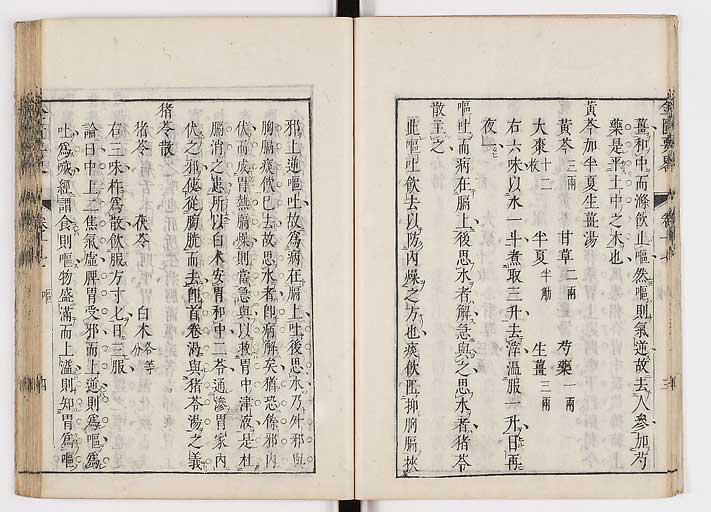 薑和中而滌飲止嘔然嘔則氣逆故去人參加芍
藥是半土中之木也
黃芩加半夏生薑湯
黃芩三兩 甘草二兩 芍藥一兩
大棗十二枚 半夏半觔 生薑三兩
右六味以水一斗煮取三升去滓溫服一升日再
夜一
嘔吐而病在膈上後思水者解急與之思水者猪苓
散主之
此嘔吐飲去以防內燥之方也痰飲匝抑胸膈挾
邪上逆嘔吐故為病在膈上吐後思水乃外邪與
胸膈痰飲已去故思水者卽病解矣猶恐餘邪內
伏而成胃熱膈燥則當急與以救胃中津液是杜
膈消之患所以白朮安胃和中二苓通滲胃家內
伏之邪使從膀胱而去卽首卷渴與猪苓湯之義
猪苓散
猪苓 茯苓 白朮各等分
右三味杵為散飲服方寸匕日三服
論曰中上二焦氣虛脾胃受邪而上逆則為嘔為
吐為噦經謂食則嘔物盛滿而上溢則知胃為嘔